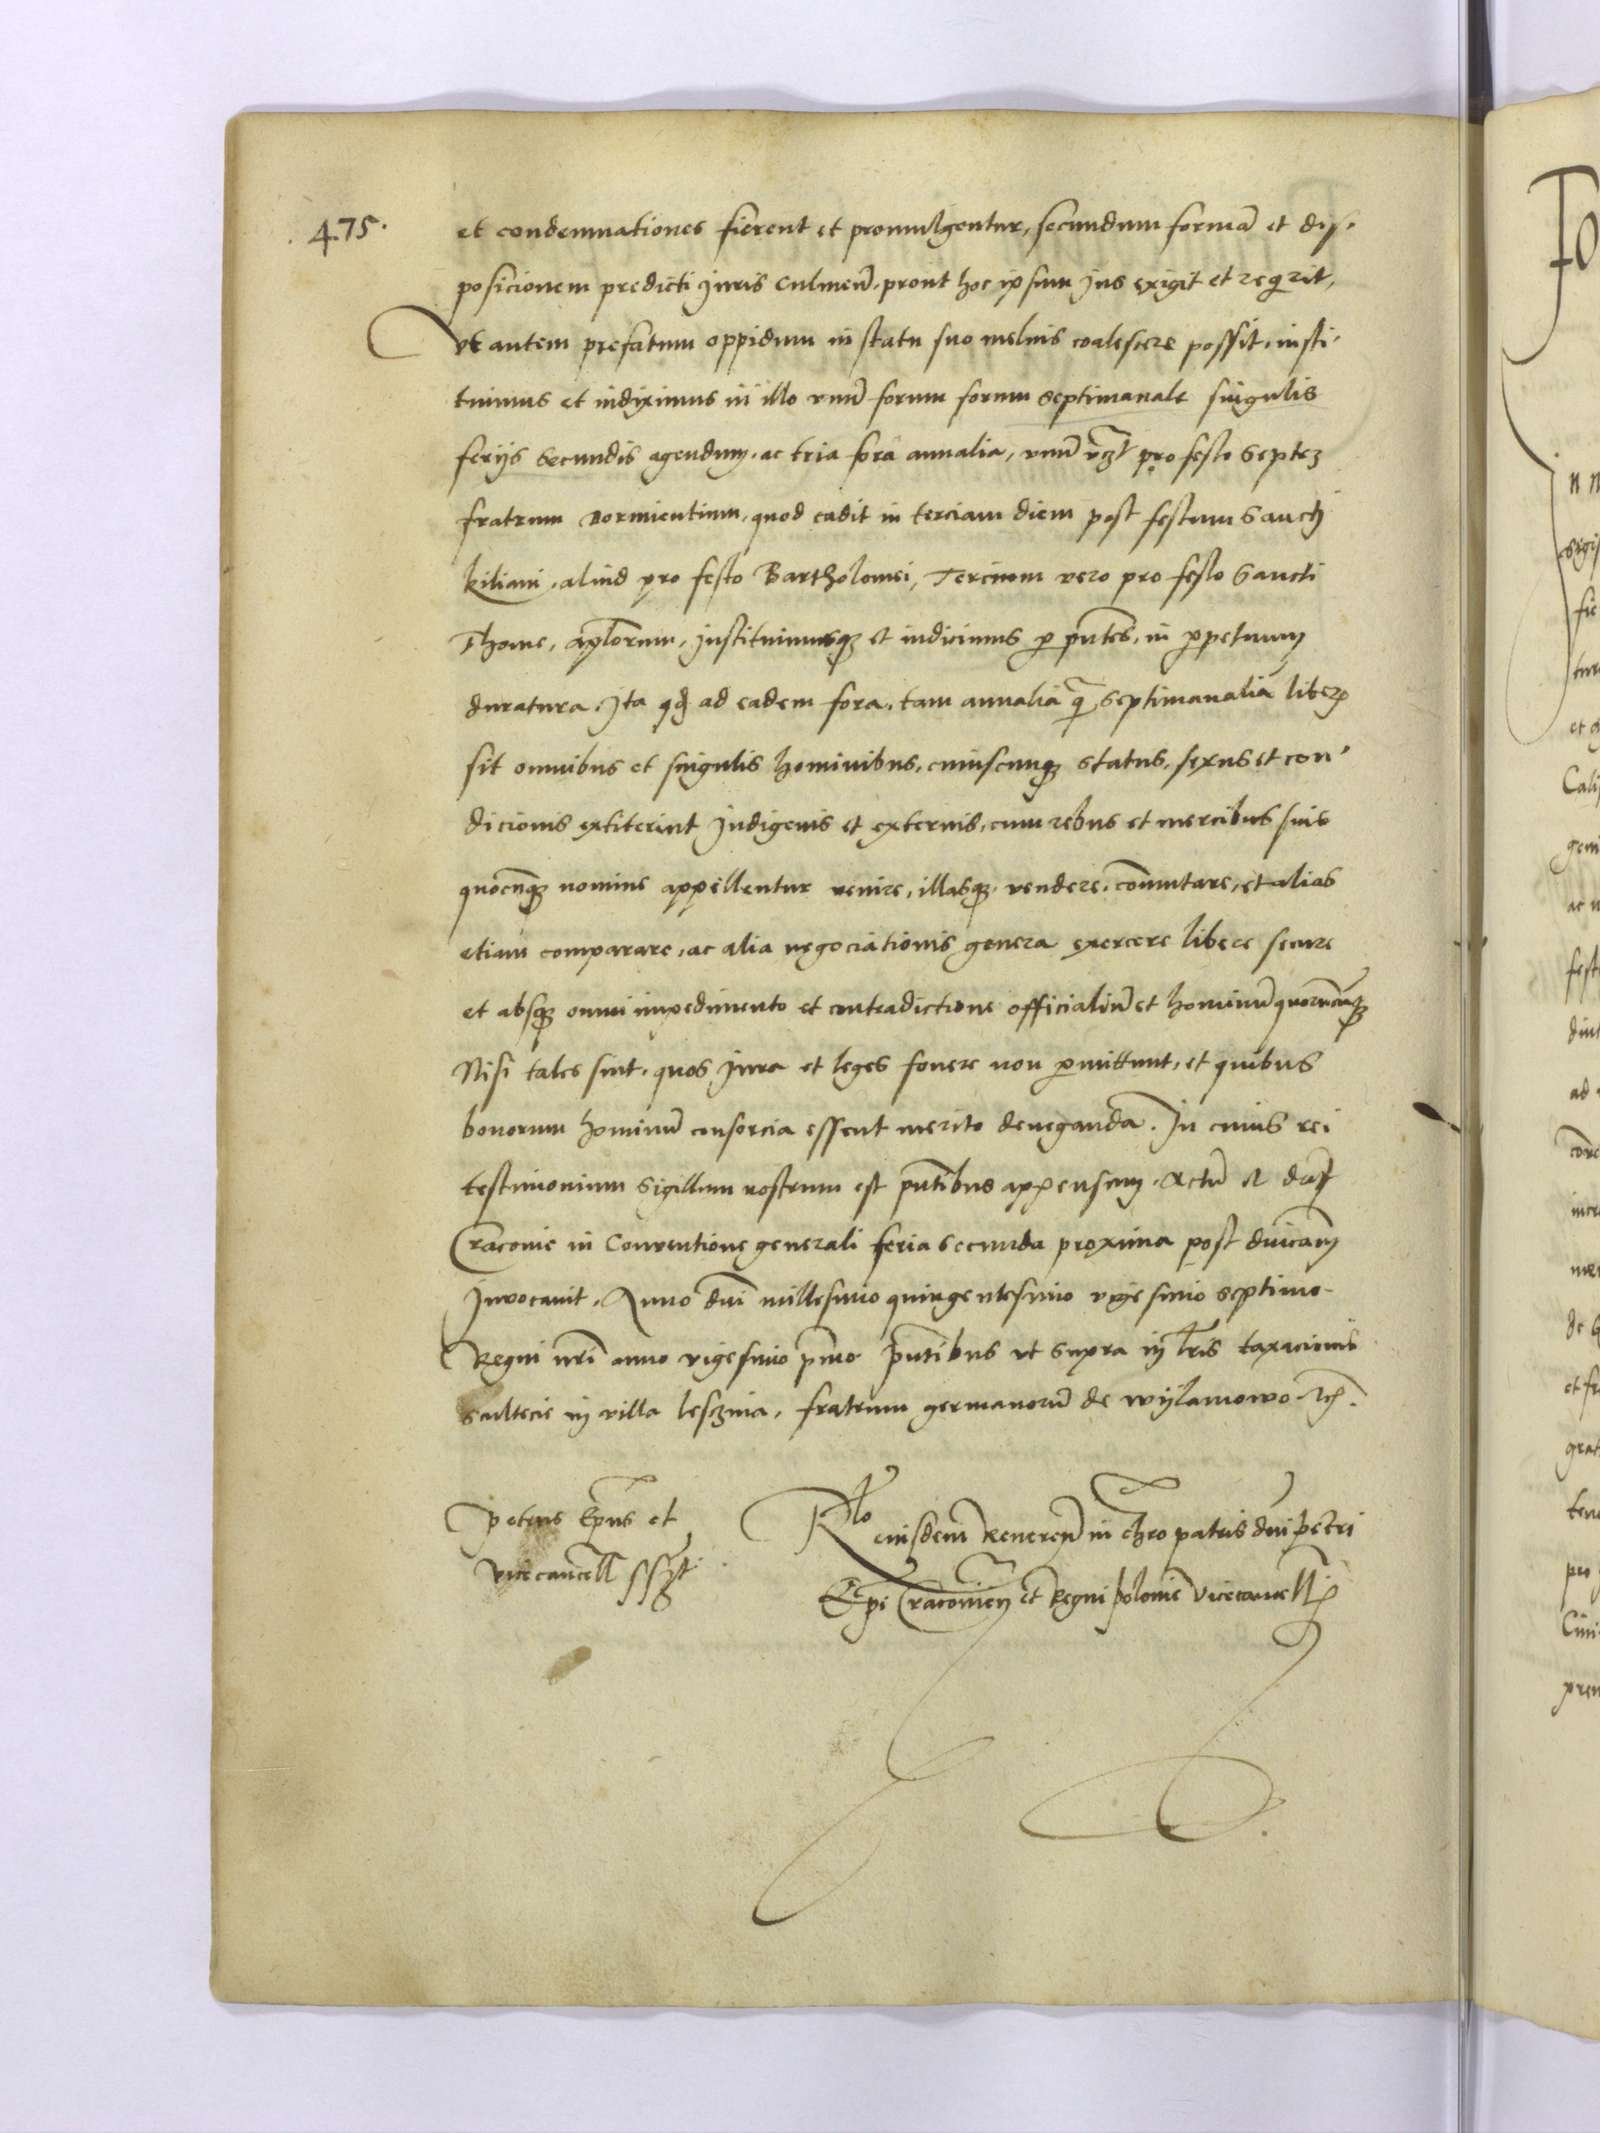 .475.
et condemnationes fierent et promulgentur, secundum formā et dis-
posicionem predicti Juris Culmeñ. prout hoc ipsum Jus exigit et reqͥrit,
Vt autem prefatum oppidum in statu suo melius coalescere possit, insti-
tuimus et indiximus in illo vnū forum forum septimanale singulis
ferijs secundis agendum, ac tria fora annalia, vnū vꝫt pro festo Septeꝫ
fratrum Dormientium, quod cadit in terciam diem post festum Sancti
kiliani, aliud pro festo Bartholomei, Tercium vero pro festo Sancti
Thome, aplorum, Instituimusqꝫ et indicimus ꝑ pñtes, in ꝑpetuum
duratura. Ita qd ad eadem fora, tam annalia qͣ septimanalia libeꝝ
sit omnibus et singulis hominibus, cuiuscunqꝫ status, sexus et con-
dicionis extiterint Indigenis et externis, cum rebus et mercibus suis
quocūqꝫ nomine appellentur venire, illasqꝫ vendere, comutare, et alias
etiam comparare, ac alia negociationis genera exercere libere secure
et absqꝫ omni impedimento et contradictione officialiū et hominū quorūcūqꝫ
Nisi tales sint, quos Jura et leges fouere non ꝑmittunt, et quibus
bonorum hominū consorcia essent merito deneganda. In cuius rei
testimonium Sigillum nostrum est pñtibus appensum. Actū et dat
Cracouie in Conuentione generali feria secunda proxima post dñicam
Inuocauit, Anno dñi millesimo quingentesimo vigesimo septimo
Regni nri anno vigesimo pͥmo pñtibus vt supra in lris taxacionis
scultecie in villa leschnia, fratrum germanorū de Wylamowo ꝛc.
Petrus Epus et
Vicecancell sszt
Rlo eiusdem Reuerendi in Chro patris dñi Petri
Epi Cracouien et Regni Polonie Vicecancellꝝ